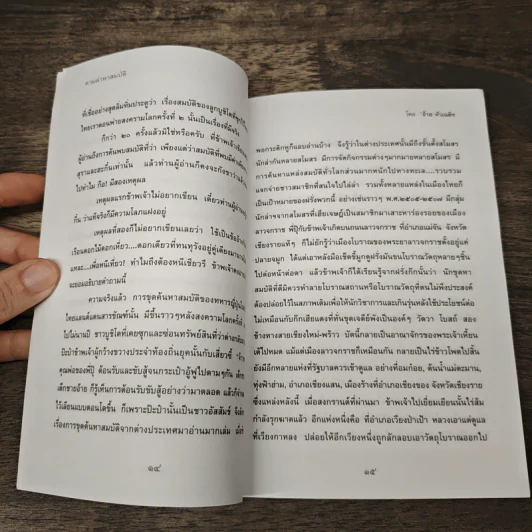 ตามล่าหาสมบัติ
ที่เชื่ออย่างสุดลิ่มทิ่มประตูว่า เรื่องสมบัติของลูกญี่ปุ่นที่
ไทยเราตอนพ่ายสงครามโลกครั้งที่ ๒ นั้นเป็นเรื่องที่มีจริง
กึกว่า ๒๐ ครั้งแล้วมิใช่หรือครับ ที่ข้าพเจ้า
ผู้อ่านถึงการค้นพบสมบัติที่ว่า เพียงแต่ว่าสมบัติที่พบมี
สุราและสะกันเท่านั้น แล้วท่านผู้อ่านก็คงจะกังขาว่าแล้ว
ไปทำไม ก็อ! มีสองเหตุผล
เหตุผลแรกข้าพเจ้าไม่อยากเขียน เดี๋ยวท่านผู้อ่าน
กัน ว่าแท้จริงก็มีความโลภแฝงอยู่
เหตุผลที่สองก็ไม่อยากเขียนเลยว่า ใช้เป็นข้ออ้าง
เรือนดอกไม้ดอกเที่ยว....ดอกเดียวที่ทนทุรังอยู่คู่เดียวมานาน
แหละ....เพื่อหนีเที่ยว! ทำไมถึงต้องหนีเชียวรึ ข้าพเจ้า
จะยอมอธิบายคำถามนี้
ความจริงแล้ว การขุดค้นหาสมบัติของทหารญี่ปุ่น
ไทยแลนด์แดนสารขัณฑ์นั้น มีขึ้นราวๆหลังสงครามโลกครั้งที่
ไปไม่นานปี ชาวบูชิโดที่เคยซุกและซ่อนทรัพย์สินที่ว่า
ปีะป๋าข้าพเจ้าผู้กว้างขวางประจำท้องถิ่นยุคนั้นกับเสี่ยวขี้
คุณพ่อของพี่ปุ๊ ต้อนรับและขับสู้จนกระเป๋าอู้ฟู่ไปตามๆกัน
เด็กชายอ้าย ก็รู้เห็นการต้อนรับขับสู้อย่างว่ามาตลอด แล้วก็
ไร้เดียงสาแบบตอนโตขึ้น ก็เพราะป๊ะป๋านั้นเป็นชาวอัสสัมชัญ
เรื่องการขุดค้นหาสมบัติจากต่างประเทศมาอ่านมากเล่ม
๑๔
โดย "อ้าย ตัวแสบ
พอกระดิกหูก็แอบอ่านบ้าง จึงรู้ว่าในต่างประเทศนั้นมีถึงขั้นตั้งสโมสร
นักล่ากันหลายสโมสร มีการจัดกิจกรรมต่างๆมากมายหลายสโมสร มี
การค้นหาแหล่งสมบัติที่ทั่วโลกส่วนมากหนักไปทางทะเล....รวบรวม
แจกจ่ายชาวสมาชิกที่สนใจไปไล่ล่า รวมทั้งหลายแห่งในเมืองไทยก็
เป็นเป้าหมายของฝรั่งพวกนี้ อย่างเช่นราวๆ พ.ศ.๒๕๐๕-๒๕๐๗ มีกลุ่ม
นักล่าฯจากสโมสรที่เสี่ยเศษฐ์เป็นสมาชิกมาเสาะหาร่องรอยของเมือง
ลาวจกราช พี่ปุ๊กับข้าพเจ้าเกิดบนถนนลาวจกราช ที่อำเภอแม่จัน จังหวัด
เชียงรายแท้ๆ ก็ไม่ยักรู้ว่าเมืองโบราณของพระยาลาวจกราชตั้งอยู่แค่
ปลายจมูก ได้แต่เอาหลังมือเช็ดขี้มูกดูฝรั่งมันขนโบราณวัตถุหลายๆชิ้น
ไปต่อหน้าต่อตา แล้วข้าพเจ้าก็ได้เรียนรู้จากฝรั่งกึกนั้นว่า นักขุดหา
สมบัติที่ดีมีควรทำลายโบราณสถานหรือโบราณวัตถุที่ตนไม่พึงประสงค์
ต้องปล่อยไว้ในสภาพเดิมเพื่อให้นักวิชาการและเก็นรุ่นหลังใช้ประโยชน์ต่อ
ไม่เหมือนกับกึกเฮียแดงที่ทั้นขุดเจดีย์พังเป็นองค์ๆ วัดวา โบสถ์ สอง
ข้างทางสายเชียงใหม่-พร้าว บัดนี้กลายเป็นอาณาจักรของพระเจ้าเหี้ยน
เตี้ไปหมด แม้แต่เมืองลาวจกราชก็เหมือนกัน กลายเป็นไร่ข้าวโพดไปสิ้น
ยังมีอีกหลายแห่งที่รัฐบาลควรเข้าดูแล อย่างที่อมก๋อย, ต้นน้ำแม่ตะมาน,
ทุ่งฟ้าฮ่าม, อำเภอเชียงแสน, เมืองร้างที่อำเภอเชียงของ จังหวัดเชียงราย
ซึ่งแห่งหลังนี้ เมื่อสงกรานต์ที่ผ่านมา ข้าพเจ้าไปเยี่ยมเยียนนั้นไร่ส้ม
กำลังรุกฆาตแล้ว อีกแห่งหนึ่งคือ ที่อำเภอเวียงป่าเป้า หลวงเอาแต่ดูแล
ที่เวียงกาหลง ปล่อยให้อีกเวียงหนึ่งถูกลักลอบเอาวัตถุโบราณออกไป
๑๕